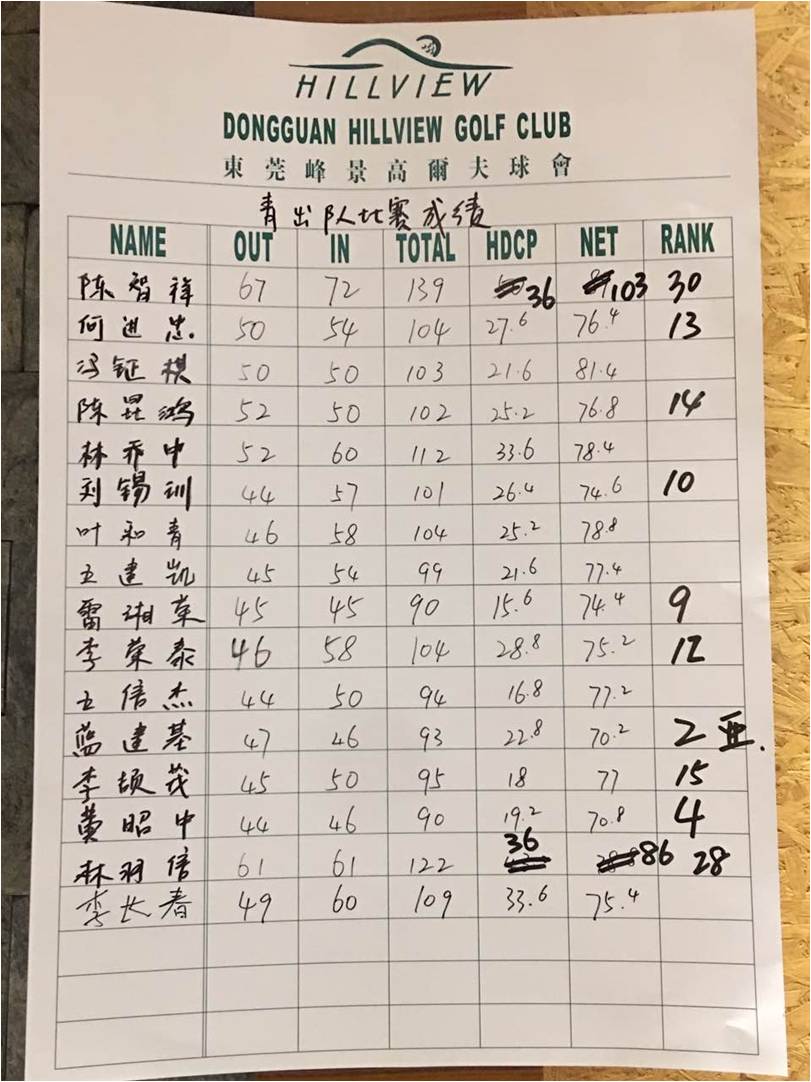 HILLVIEW
DONGGUAN HILLVIEW GOLF CLUB
東莞峰景高爾夫球會
青出队比赛成绩
NAME OUT IN TOTAL HDCP NET RANK
陈智祥 67 72 139 36 103 30
何进忠 50 54 104 27.6 76.4 13
冯钲棋 50 50 103 21.6 81.4
陈昆鸿 52 50 102 25.2 76.8 14
林乔中 52 60 112 33.6 78.4
刘锡训 44 57 101 26.4 74.6 10
叶和青 46 58 104 25.2 78.8
王建凯 45 54 99 21.6 77.4
雷湘 45 45 90 15.6 74.4 9
李荣泰 46 58 104 28.8 75.2 12
王信杰 44 50 94 16.8 77.2
蓝建基 47 46 93 22.8 70.2 2 亚.
李颉茂 45 50 95 18 77 15
黄昭中 44 46 90 19.2 70.8 4
林羽信 61 61 122 36 86 28
李长春 49 60 109 33.6 75.4